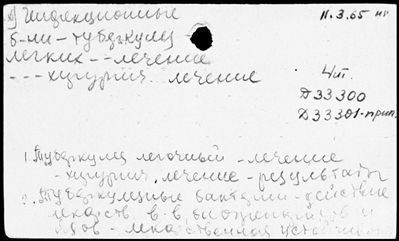 Инфекционные
б-ни - туберкулез -
легких - - лечение
- - - хирургич. лечение
11.3.65
Чит.
Д33300
Д33301-прил.
1. Туберкулез легочный - лечение
- хирург. лечение - результаты
2. Туберкулезные бактерии - действие
лекарств. в-в,
- лекарственная